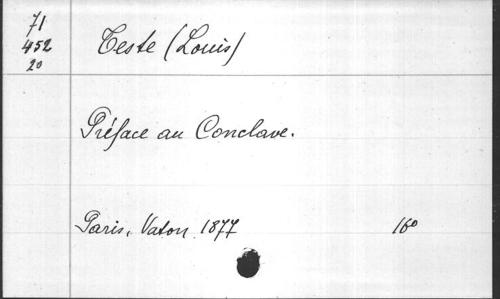 71
452
20
Teste (Louis)
Préface au Conclave.
Paris, Vaton 1877 16°